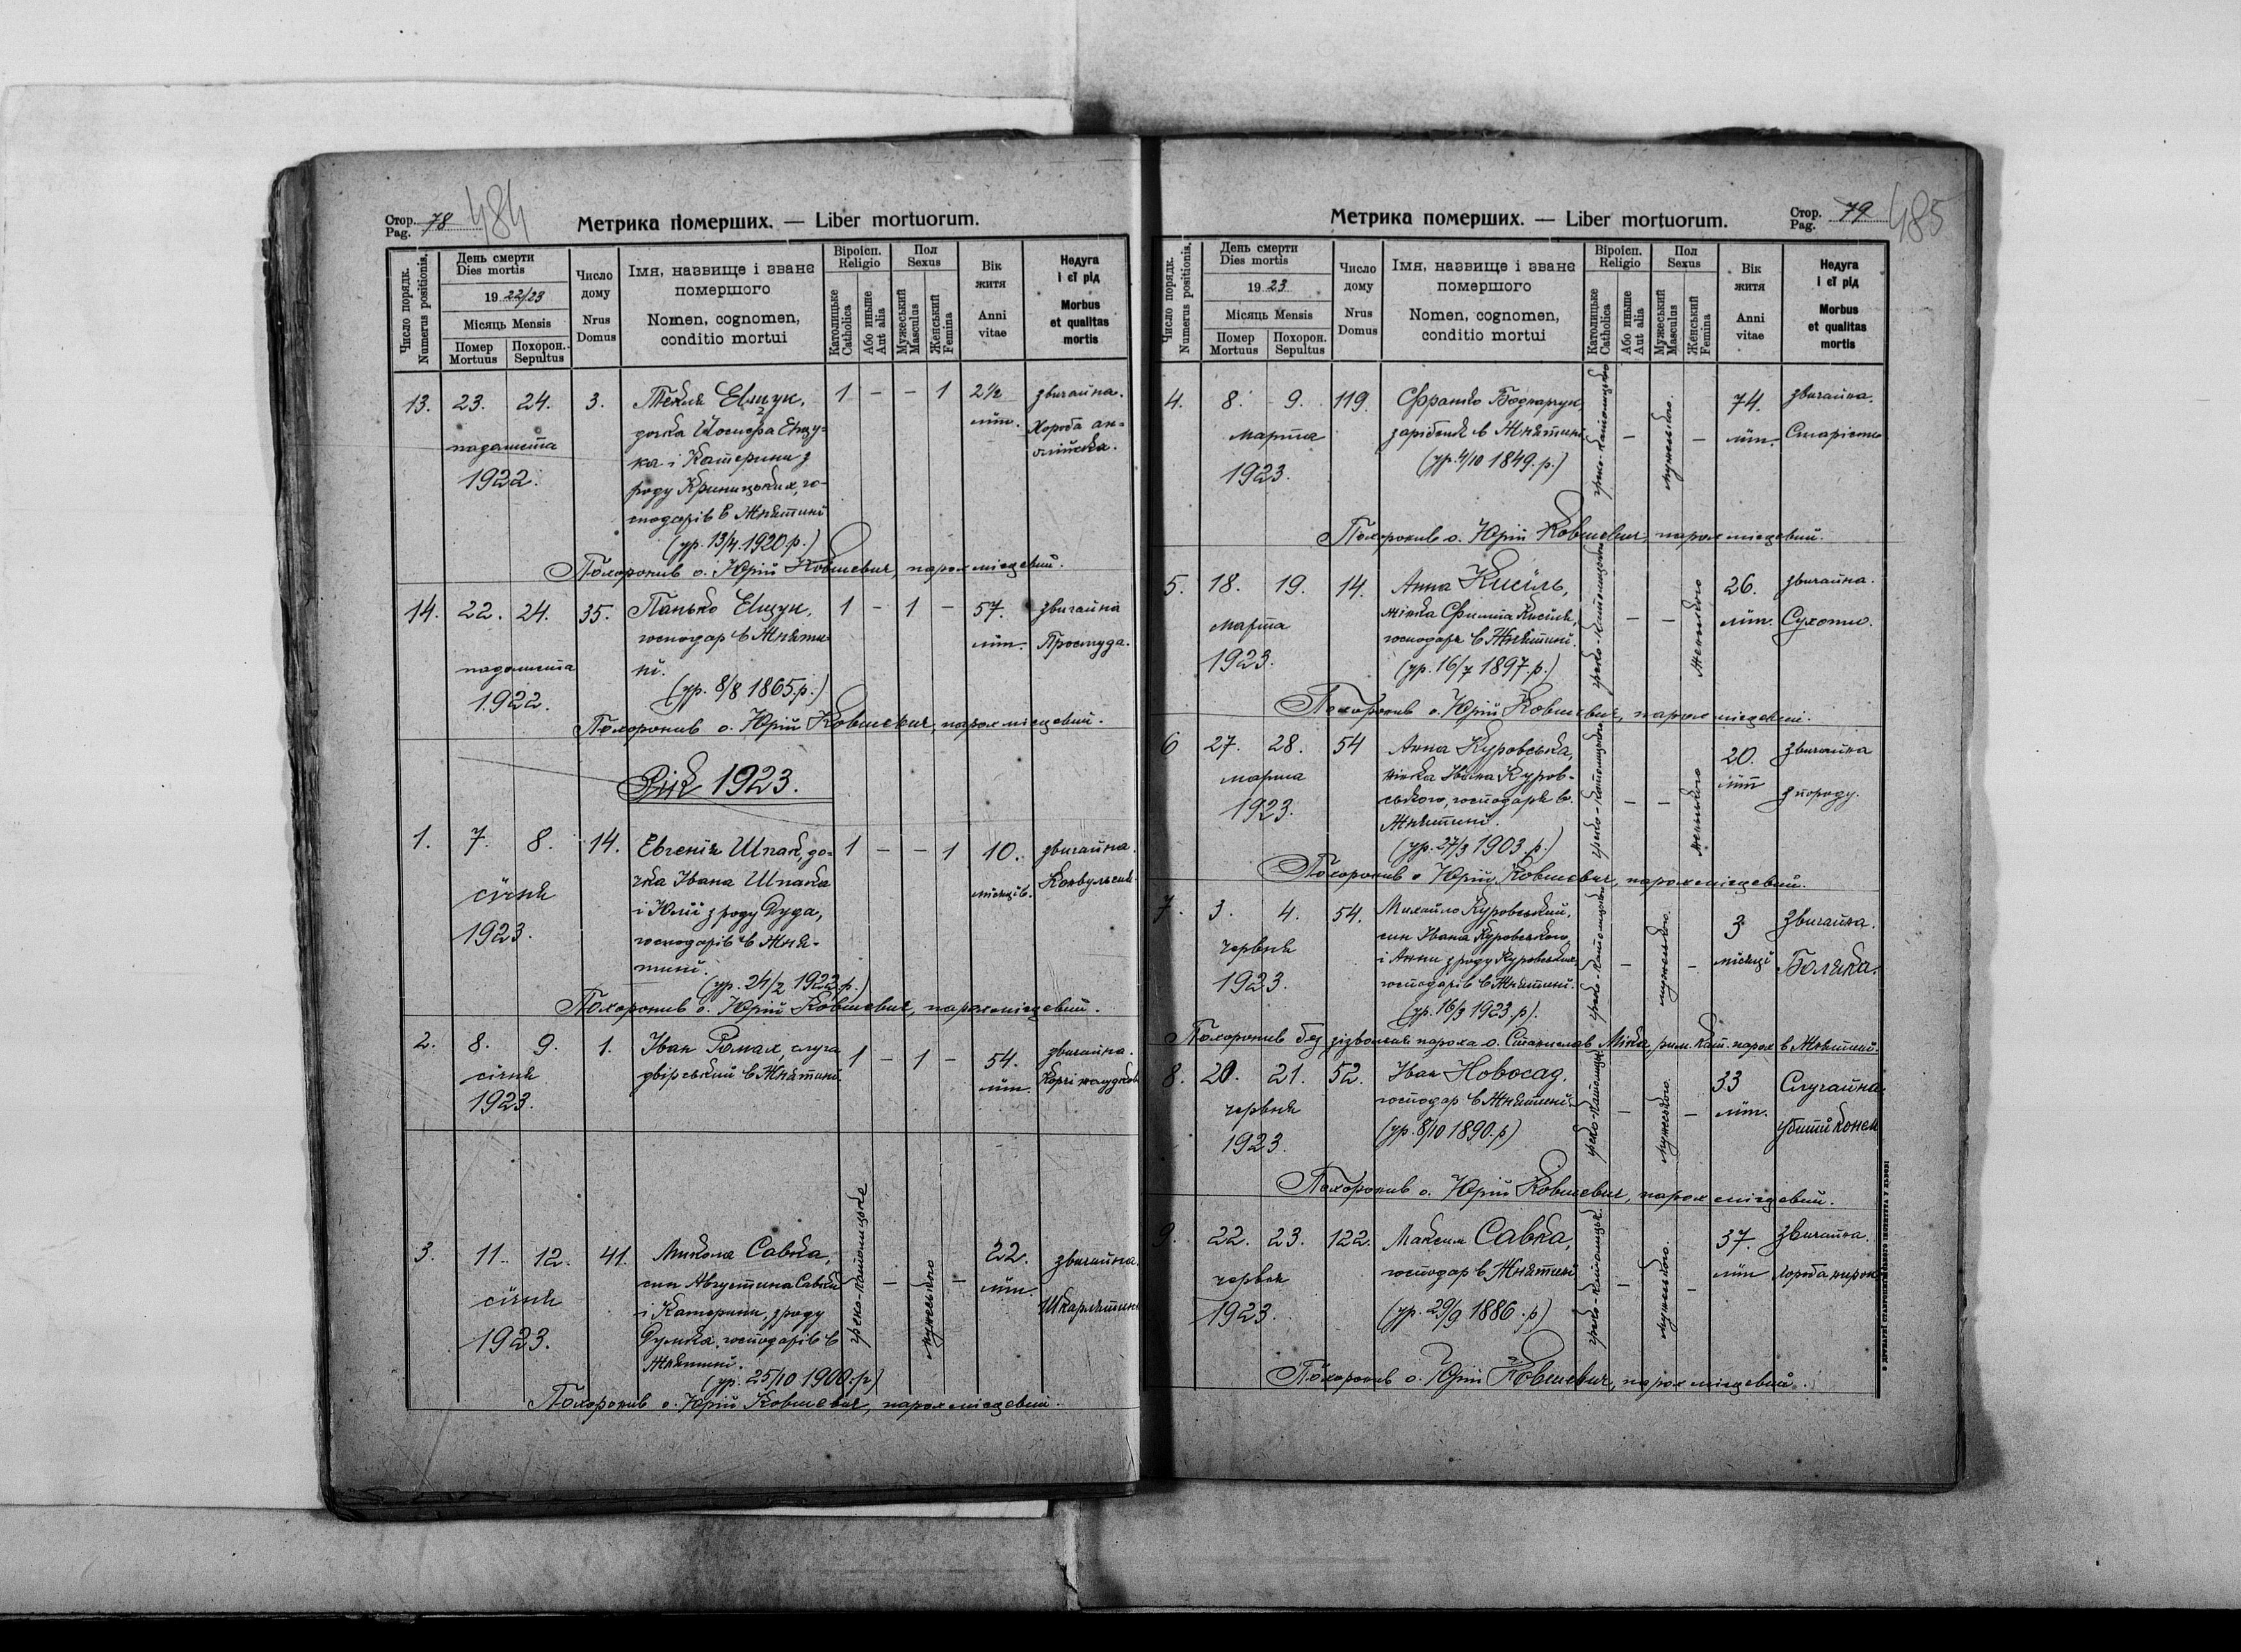 Стор. Pag. 78 484
Метрика померших. — Liber mortuorum.
Число порядк. Numerus positionis.
День смерти Dies mortis
19 22/23
Місяць Mensis
Помер Mortuus
Похорон. Sepultus
Число дому Nrus Domus
Імя, назвище і зване помершого
Nomen, cognomen, conditio mortui
Віроісп. Religio
Католицьке Catholica
Або иньше Aut alia
Пол Sexus
Мужеський Masculus
Женський Femina
Вік житя Anni vitae
Недуга і єї рід
Morbus et qualitas mortis
13. 23. 24. 3. Текля Елщук, 1 - - 1 2½ звичайна.
дочка Йосифа Єлщу- літ. Хороба ан-
падолиста ка і Катерини з глійська.
1922. роду Криницьких, го-
сподарів в Жнятині
(ур. 13/4. 1920. р.)
Похоронив о. Юрій Ковшевич, парох місцевий.
14. 22. 24. 35. Панько Елщук, 1 - 1 - 57. звичайна
господар в Жняти- літ. Простуда.
падолиста ні.
1922. (ур. 8/8 1865. р.)
Похоронив о. Юрій Ковшевич, парох місцевий.
Рік 1923.
1. 7. 8. 14. Евгенія Шпак, до- 1 - - 1 10. звичайна.
січня чка Івана Шпака місяців. Конвульсии
1923. і Юлії з роду Дуда,
господарів в Жня-
тині.
(ур. 24/2 1922. р.)
Похоронив о. Юрій Ковшевич, парох місцевий.
2. 8. 9. 1. Іван Ромах, слуга 1 - 1 - 54. звичайна.
січня двірський в Жнятині. літ. Корчі жолудков
1923.
3. 11. 12. 41. Микола Савка, греко-католицьке - мужеського - 22. звичайна.
січня син Августина Савки літ. Шкарлятина
1923. і Катерини, з роду
Думка, господарів в
Жнятині.
(ур. 25/10 1900. р.)
Похоронив о. Юрій Ковшевич, парох місцевий.
Метрика померших. — Liber mortuorum.
Стор. Pag. 79 485
Число порядк. Numerus positionis.
День смерти Dies mortis
19 23
Місяць Mensis
Помер Mortuus
Похорон. Sepultus
Число дому Nrus Domus
Імя, назвище і зване помершого
Nomen, cognomen, conditio mortui
Віроісп. Religio
Католицьке Catholica
Або иньше Aut alia
Пол Sexus
Мужеський Masculus
Женський Femina
Вік житя Anni vitae
Недуга і єї рід
Morbus et qualitas mortis
4. 8. 9. 119. Франко Боднарчук, греко-католицького - мужеського. - 74. звичайна.
марта зарібник в Жнятині. літ. Старість
1923. (ур. 4/10 1849. р.)
Похоронив о. Юрій Ковшевич, парох місцевий.
5. 18. 19. 14. Анна Кисіль, греко-католицького - - женського 26. звичайна.
марта жінка Филипа Кисіля, літ. Сухоти.
1923. господаря в Жнятині.
(ур. 16/7 1897. р.)
Похоронив о. Юрій Ковшевич, парох місцевий.
6 27. 28. 54 Анна Куровська, греко-католицького - - женського 20. звичайна
марта жінка Івана Куров- літ з породу.
1923. ського, господаря в
Жнятині.
(ур. 27/3 1903. р.)
Похоронив о. Юрій Ковшевич, парох місцевий.
7. 3. 4. 54. Михайло Куровський, греко-католицького - мужеського. - 3 звичайна.
червня син Івана Куровського місяці Боляка.
1923. і Анни з роду Куровських
господарів в Жнятині.
(ур. 16/3 1923. р).
Похоронив без дозволеня пароха о. Станислав Міка, рим. кат. парох в Жнятині.
8. 20. 21. 52. Іван Новосад, греко-католицького - мужеського. - 33 Случайна.
червня господар в Жнятині. літ. убитий конем
1923. (ур. 8/10 1890. р)
Похоронив о. Юрій Ковшевич, парох місцевий.
9. 22. 23. 122. Максим Савка, греко-католицьк. - мужеського. - 37. звичайна.
червня господар в Жнятині літ хороба нирок
1923. (ур. 29/9 1886. р)
Похоронив о. Юрій Ковшевич, парох місцевий.